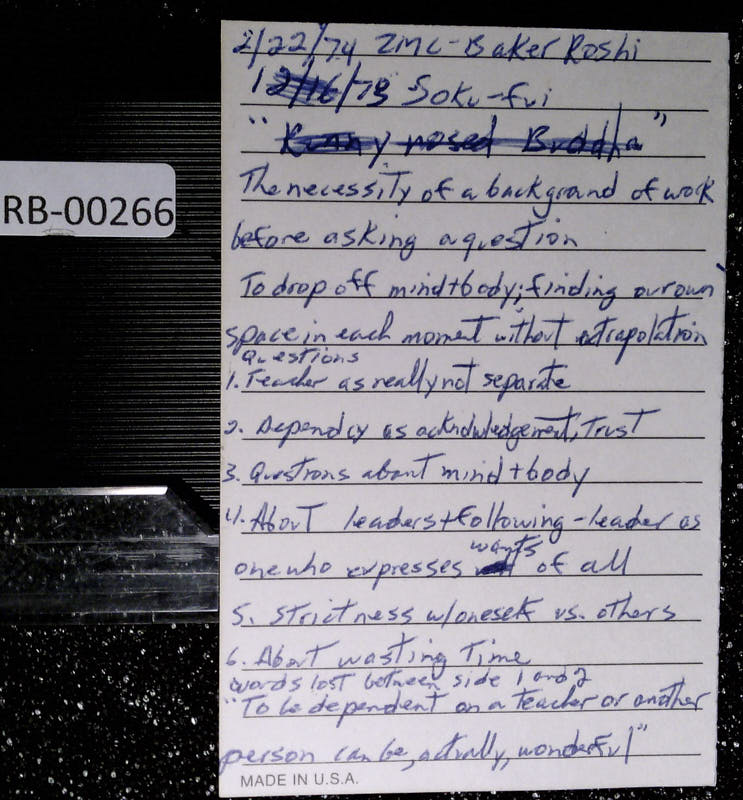 2/22/74 ZMC-Baker Roshi
12/16/73 Soku-fui
"Runny nosed Buddha"
RB-00266
The necessity of a background of work
before asking a question
To drop off mind+body; finding our own
space in each moment without extrapolation
Questions
1. Teacher as really not separate
2. Dependcy as acknowledgement, Trust
3. Questions about mind + body
4. About leaders + following - leader as
wants
one who expresses of all
5. Strictness w/oneself vs. others
6. About wasting Time
words lost between side 1 and 2
"To be dependent on a teacher or another
person can be, actually, wonderful"
MADE IN U.S.A.